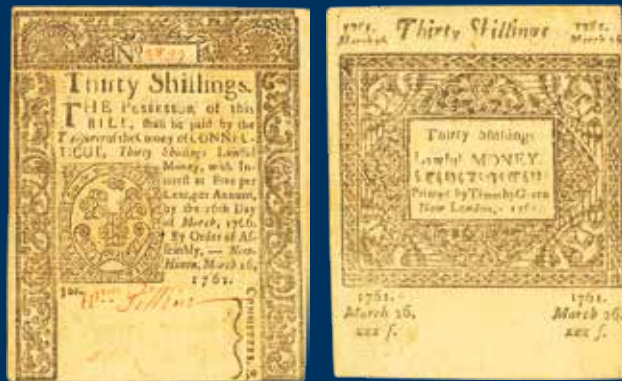 No
Thirty Shillings.
THE Possessor of this
BILL, shall be paid by the
Treasurer of the Colony of CONNEC-
TICUT, Thirty Shillings Lawful
Money, with In-
terest at Five per
Cent. per Annum,
by the 26th Day
of March, 1766.
By Order of As-
sembly, — New-
Haven, March 26,
1761.
COMMITTEE.
1761.
March 26.
Thirty Shillings
1761.
March 26.
Thirty Shillings
Lawful MONEY.
Printed by Timothy Green
New London, 1761.
1761.
March 26.
xxx ſ.
1761.
March 26.
xxx ſ.